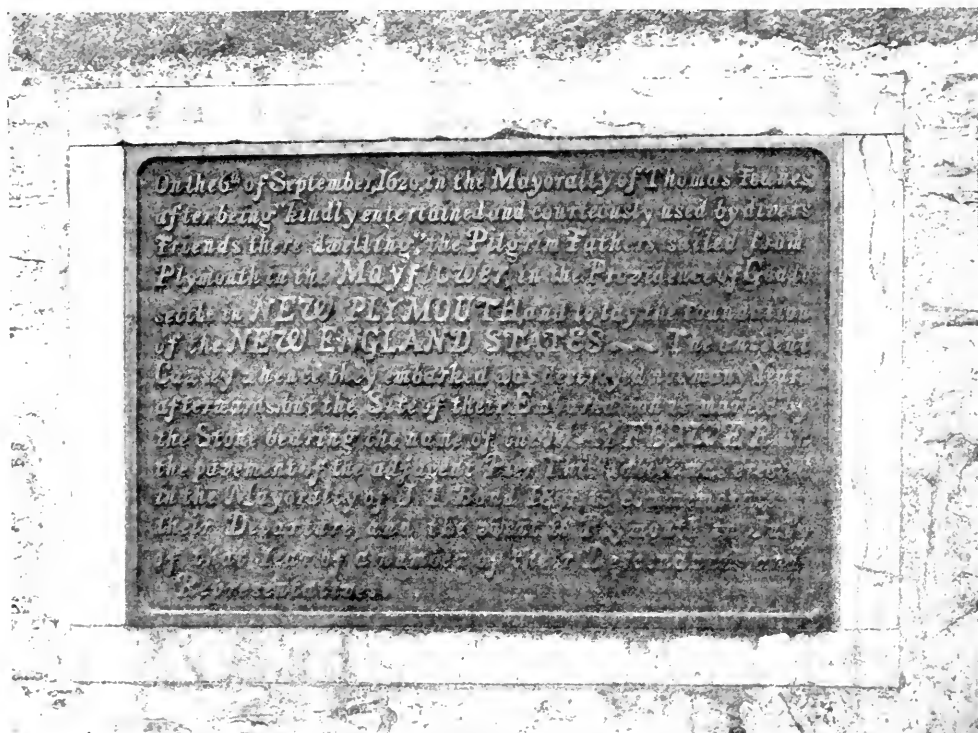 On the 6th of September, 1620, in the Mayoralty of Thomas Townes
after being "kindly entertained and courteously used by divers
Friends there dwelling," the Pilgrim Fathers sailed from
Plymouth in the Mayflower, in the Providence of God to
settle in NEW PLYMOUTH and to lay the Foundation
of the NEW ENGLAND STATES The ancient
Cawsey whence they embarked was destroyed not many Years
afterwards, but the Site of their Embarkation is marked by
the Stone bearing the name of the MAYFLOWER in
the pavement of the adjacent Pier. This Tablet was erected
in the Mayoralty of J. T. Bond, to commemorate
their Departure, and the visit to Plymouth in July
of that Year of a number of their Descendants and
Representatives.